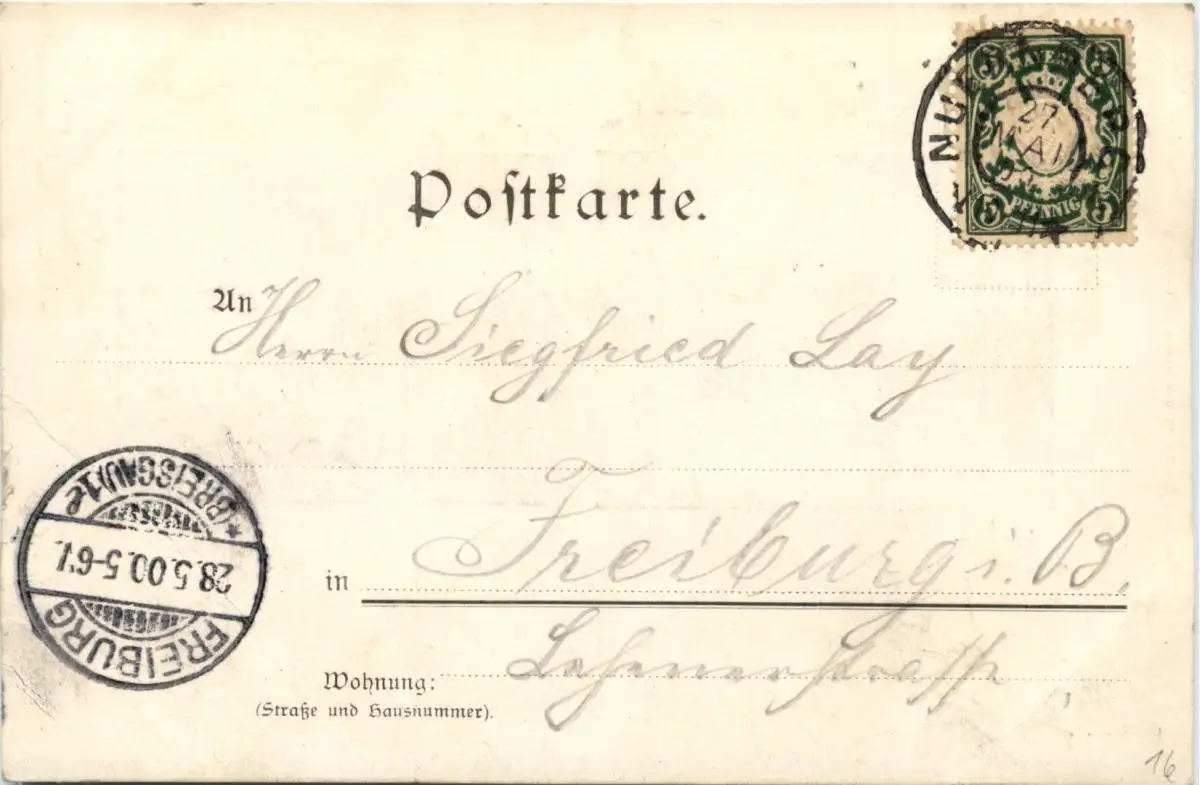 BAYERN
5 5
27
MAI
PFENNIG
5 5
Postkarte.
An Herrn Siegfried Lay
(BREISGAU) 1e
28.5.00.5-6V.
FREIBURG
in Freiburg i. B.
Wohnung: Lehenerstrasse
(Straße und Hausnummer).
16